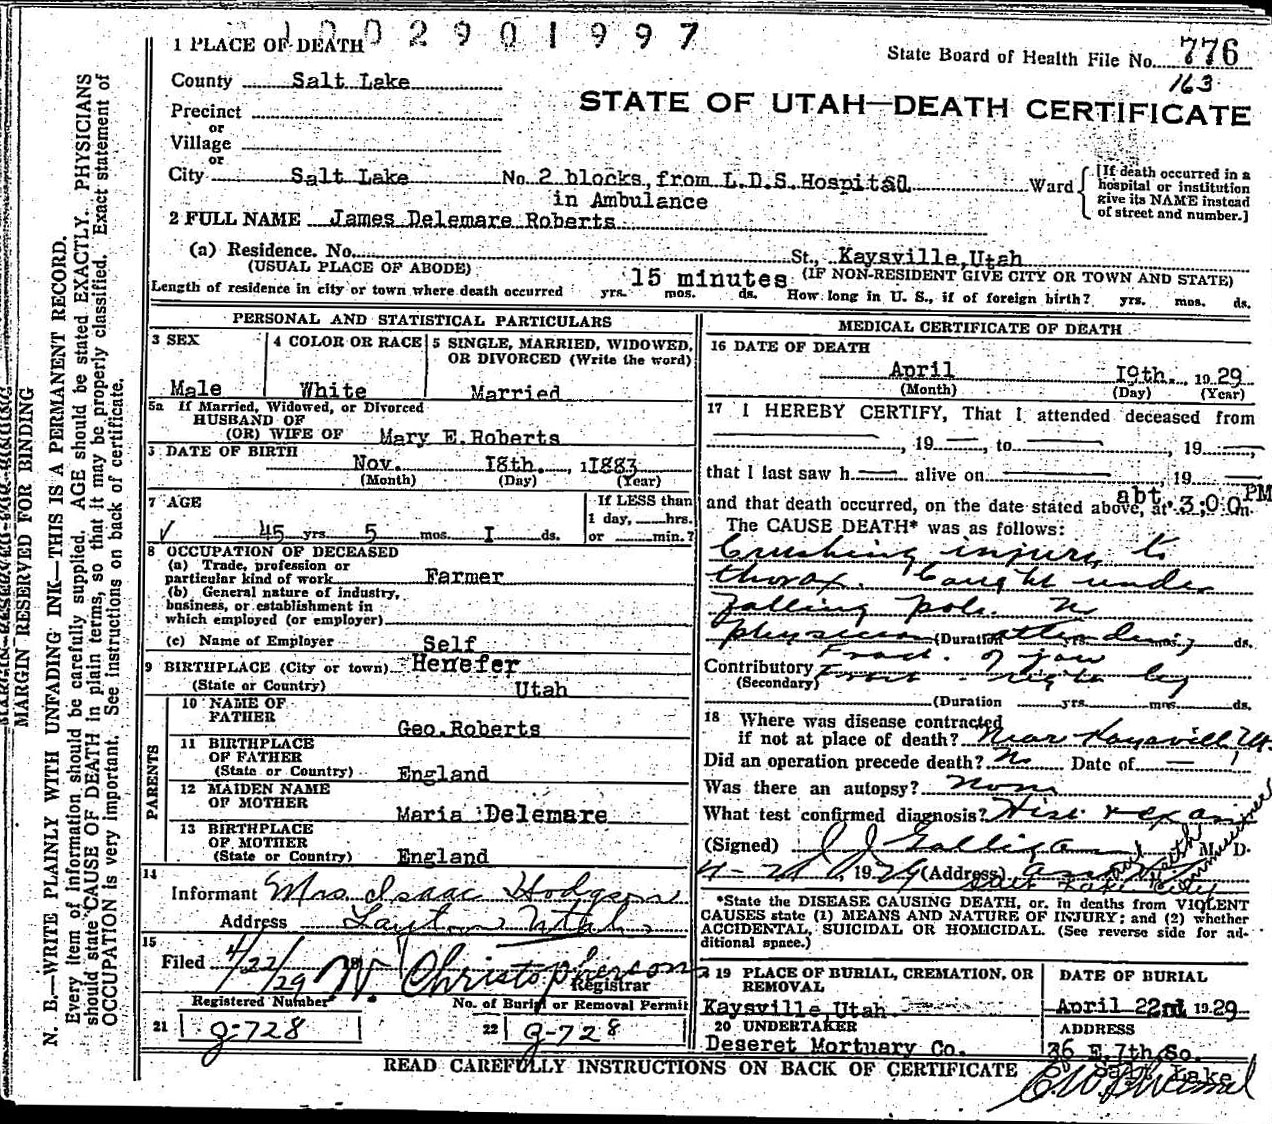 1002901997
1 PLACE OF DEATH
State Board of Health File No. 776
163
County Salt Lake
STATE OF UTAH—DEATH CERTIFICATE
Precinct
or
Village
or
City Salt Lake No 2 blocks, from L.D.S. Hospital Ward
in Ambulance
[If death occurred in a
hospital or institution
give its NAME instead
of street and number.]
2 FULL NAME James Delemare Roberts
(a) Residence. No. St., Kaysville, Utah
(USUAL PLACE OF ABODE) (IF NON-RESIDENT GIVE CITY OR TOWN AND STATE)
Length of residence in city or town where death occurred yrs. 15 minutes mos. ds. How long in U. S., if of foreign birth? yrs. mos. ds.
PERSONAL AND STATISTICAL PARTICULARS
3 SEX 4 COLOR OR RACE 5 SINGLE, MARRIED, WIDOWED,
OR DIVORCED (Write the word)
Male White Married
5a If Married, Widowed, or Divorced
HUSBAND OF
(OR) WIFE OF Mary E. Roberts
DATE OF BIRTH
Nov. 18th., 1883
(Month) (Day) (Year)
7 AGE If LESS than
1 day, hrs.
45 yrs. 5 mos. I ds. or min.?
8 OCCUPATION OF DECEASED
(a) Trade, profession or
particular kind of work Farmer
(b) General nature of industry,
business, or establishment in
which employed (or employer)
(c) Name of Employer Self
9 BIRTHPLACE (City or town) Henefer
(State or Country) Utah
PARENTS
10 NAME OF
FATHER Geo. Roberts
11 BIRTHPLACE
OF FATHER
(State or Country) England
12 MAIDEN NAME
OF MOTHER Maria Delemare
13 BIRTHPLACE
OF MOTHER
(State or Country) England
14
Informant Mrs. Isaac Hodgson
Address Layton Utah
15
Filed 4/22/29 W. Christopherson
Registrar
Registered Number No. of Burial or Removal Permit
21 g-728 22 g-728
MEDICAL CERTIFICATE OF DEATH
16 DATE OF DEATH
April 19th., 1929
(Month) (Day) (Year)
17 I HEREBY CERTIFY, That I attended deceased from
, 19 , to , 19 ,
that I last saw h alive on , 19
and that death occurred, on the date stated above, at abt. 3:00 PM m.
The CAUSE DEATH* was as follows:
Crushing injury to
thorax. Caught under
falling pole. No
physician attending
(Duration yrs. mos. ds.
Fract. of jaw
Contributory Fract - right leg
(Secondary)
(Duration yrs. mos. ds.
18 Where was disease contracted
if not at place of death? Near Kaysville Ut.
Did an operation precede death? No Date of —
Was there an autopsy? None
What test confirmed diagnosis? Hist & exam
(Signed) J J Galligan M. D.
1929 (Address)
Salt Lake City
Health Commissioner
*State the DISEASE CAUSING DEATH, or. in deaths from VIOLENT
CAUSES state (1) MEANS AND NATURE OF INJURY; and (2) whether
ACCIDENTAL, SUICIDAL OR HOMICIDAL. (See reverse side for ad-
ditional space.)
19 PLACE OF BURIAL, CREMATION, OR
REMOVAL
Kaysville, Utah
DATE OF BURIAL
April 22nd 1929
20 UNDERTAKER
Deseret Mortuary Co.
ADDRESS
36 E. 7th So.
Salt Lake
READ CAREFULLY INSTRUCTIONS ON BACK OF CERTIFICATE
MARGIN RESERVED FOR BINDING
N. B.—WRITE PLAINLY WITH UNFADING INK—THIS IS A PERMANENT RECORD.
Every item of information should be carefully supplied. AGE should be stated EXACTLY. PHYSICIANS
should state CAUSE OF DEATH in plain terms, so that it may be properly classified. Exact statement of
OCCUPATION is very important. See instructions on back of certificate.